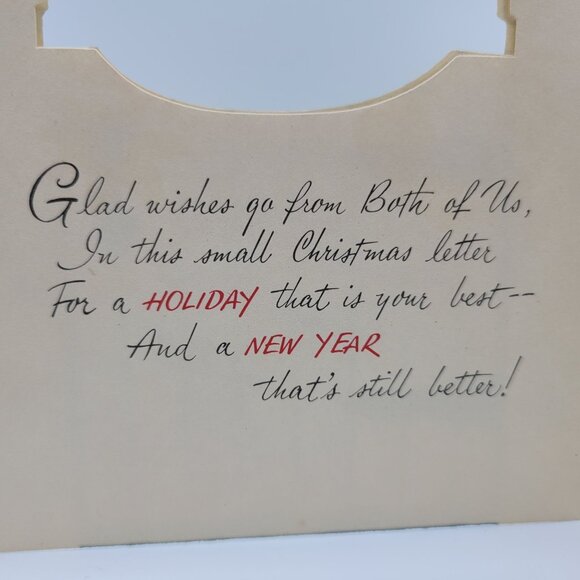 Glad wishes go from Both of Us,
In this small Christmas letter
For a HOLIDAY that is your best--
And a NEW YEAR
that's still better!